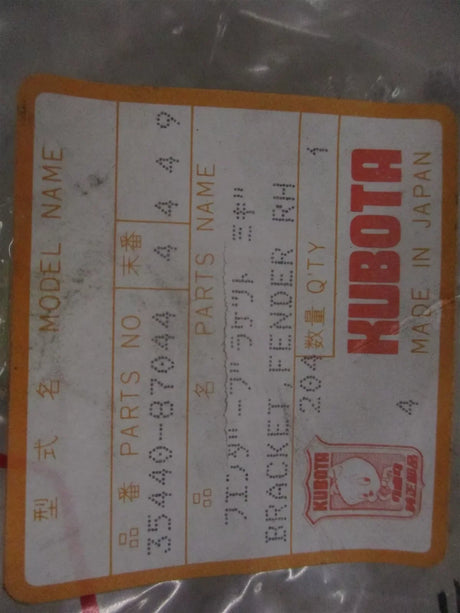 型式名 MODEL NAME
品番 PARTS NO 末番
35440-87044 4 4 4 9
品名 PARTS NAME
フエンダーブラケツト ミギ
BRACKET,FENDER RH
204 数量 Q'TY 1
KUBOTA
4 MADE IN JAPAN
KUBOTA
純正部品